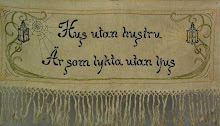 Hus utan hustru
Är som lykta utan ljus